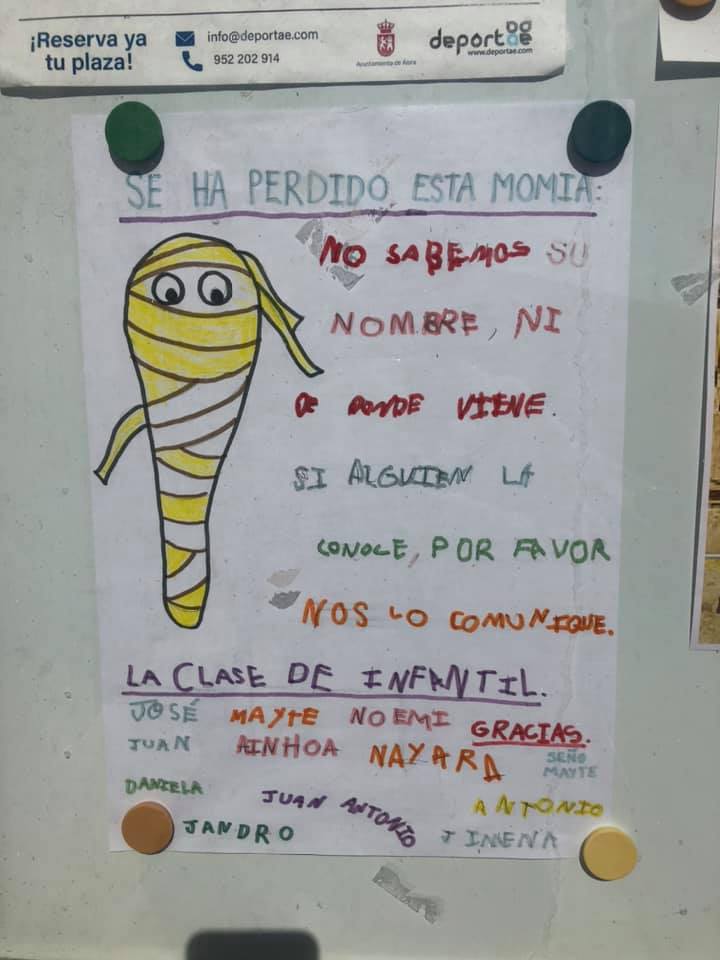 ¡Reserva ya
tu plaza!
info@deportae.com
952 202 914
Ayuntamiento de Álora
deportae
www.deportae.com
SE HA PERDIDO ESTA MOMIA:
NO SABEMOS SU
NOMBRE, NI
DE DONDE VIENE.
SI ALGUIEN LA
CONOCE, POR FAVOR
NOS LO COMUNIQUE.
LA CLASE DE INFANTIL.
JOSÉ MAYTE NOEMI GRACIAS.
JUAN AINHOA NAYARA SEÑO
MAYTE
DANIELA JUAN ANTONIO ANTONIO
JANDRO JIMENA